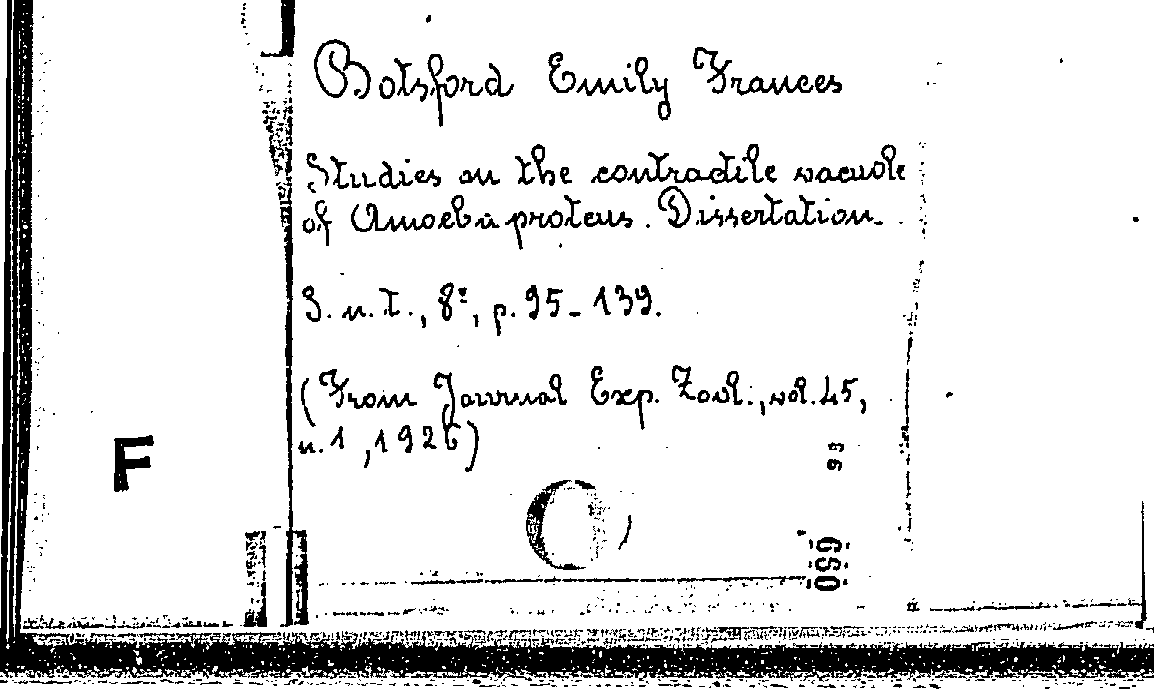 Botsford Emily Frances
Studies on the contractile vacuole
of Amoeba proteus. Dissertation.
S. n. t., 8°, p. 95-139.
(From Journal Exp. Zool., vol. 45,
n. 1, 1926)
F